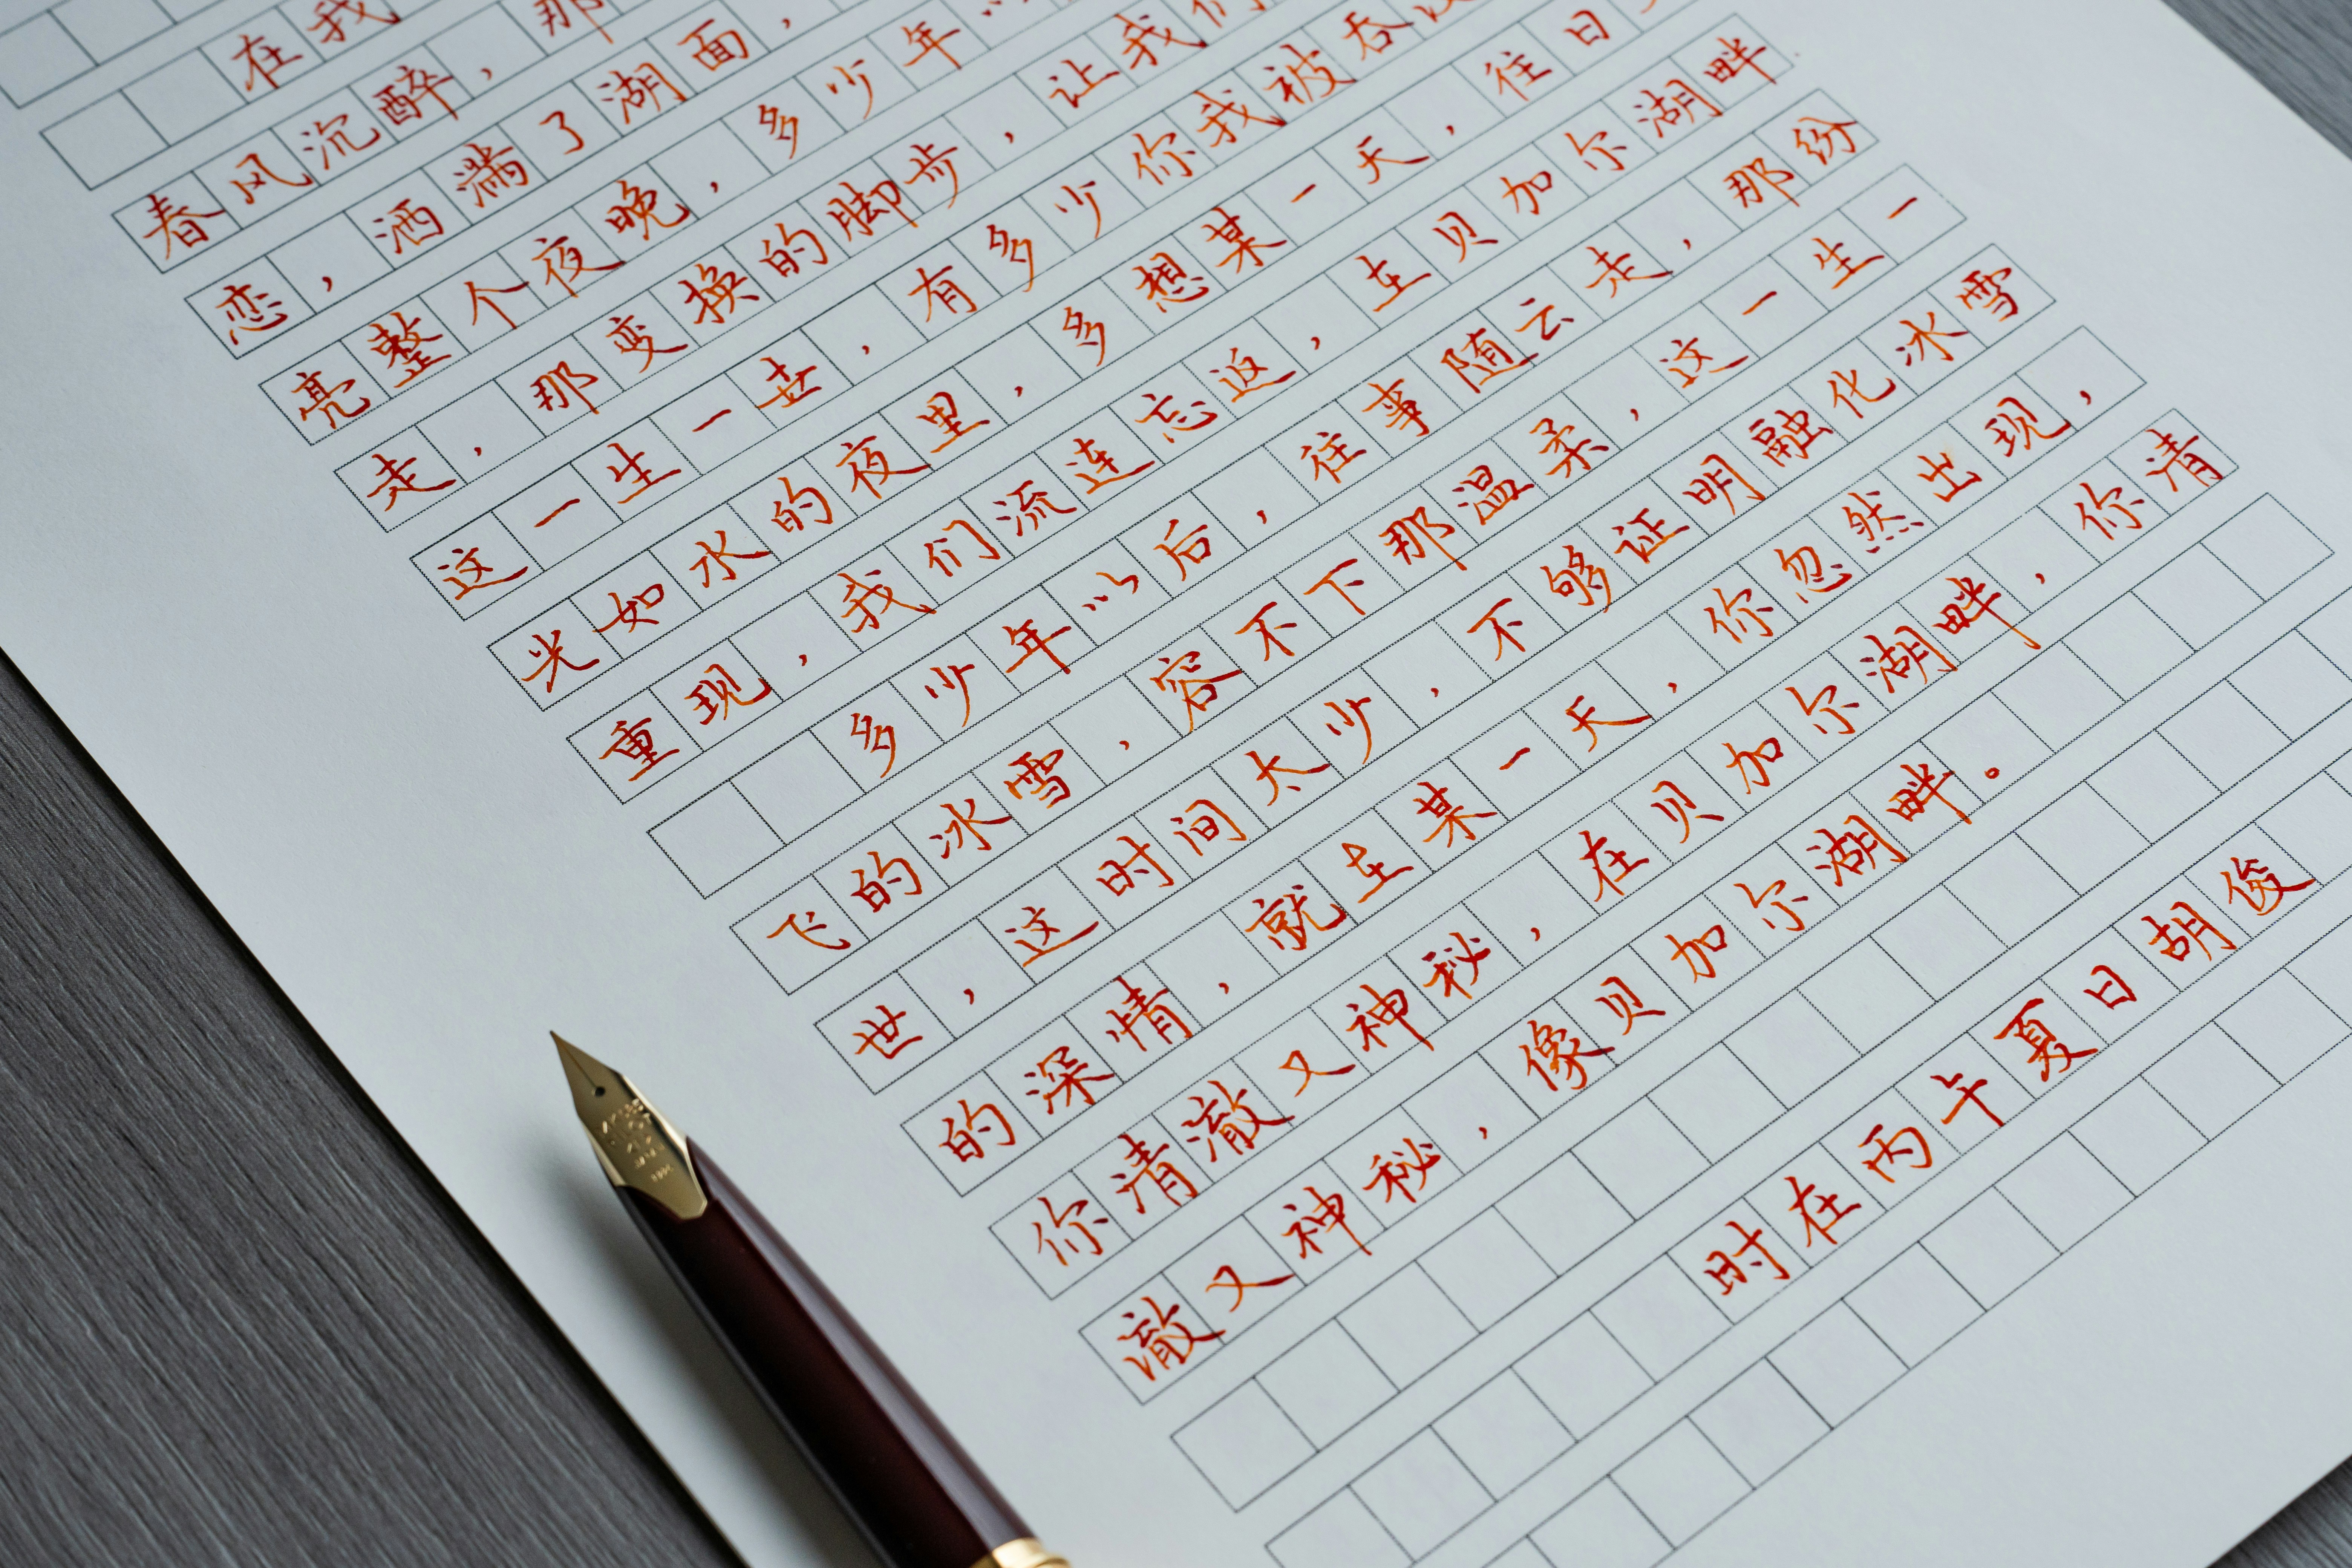 在我
春风沉醉，那
恋，洒满了湖面，
亮整个夜晚，多少年以
走，那变换的脚步，让我们
这一生一世，有多少你我被吞
光如水的夜里，多想某一天，往日
重现，我们流连忘返，在贝加尔湖畔
多少年以后，往事随云走，那纷
飞的冰雪，容不下那温柔，这一生一
世，这时间太少，不够证明融化冰雪
的深情，就在某一天，你忽然出现，
你清澈又神秘，在贝加尔湖畔，你清
澈又神秘，像贝加尔湖畔。
时在丙午夏日胡俊